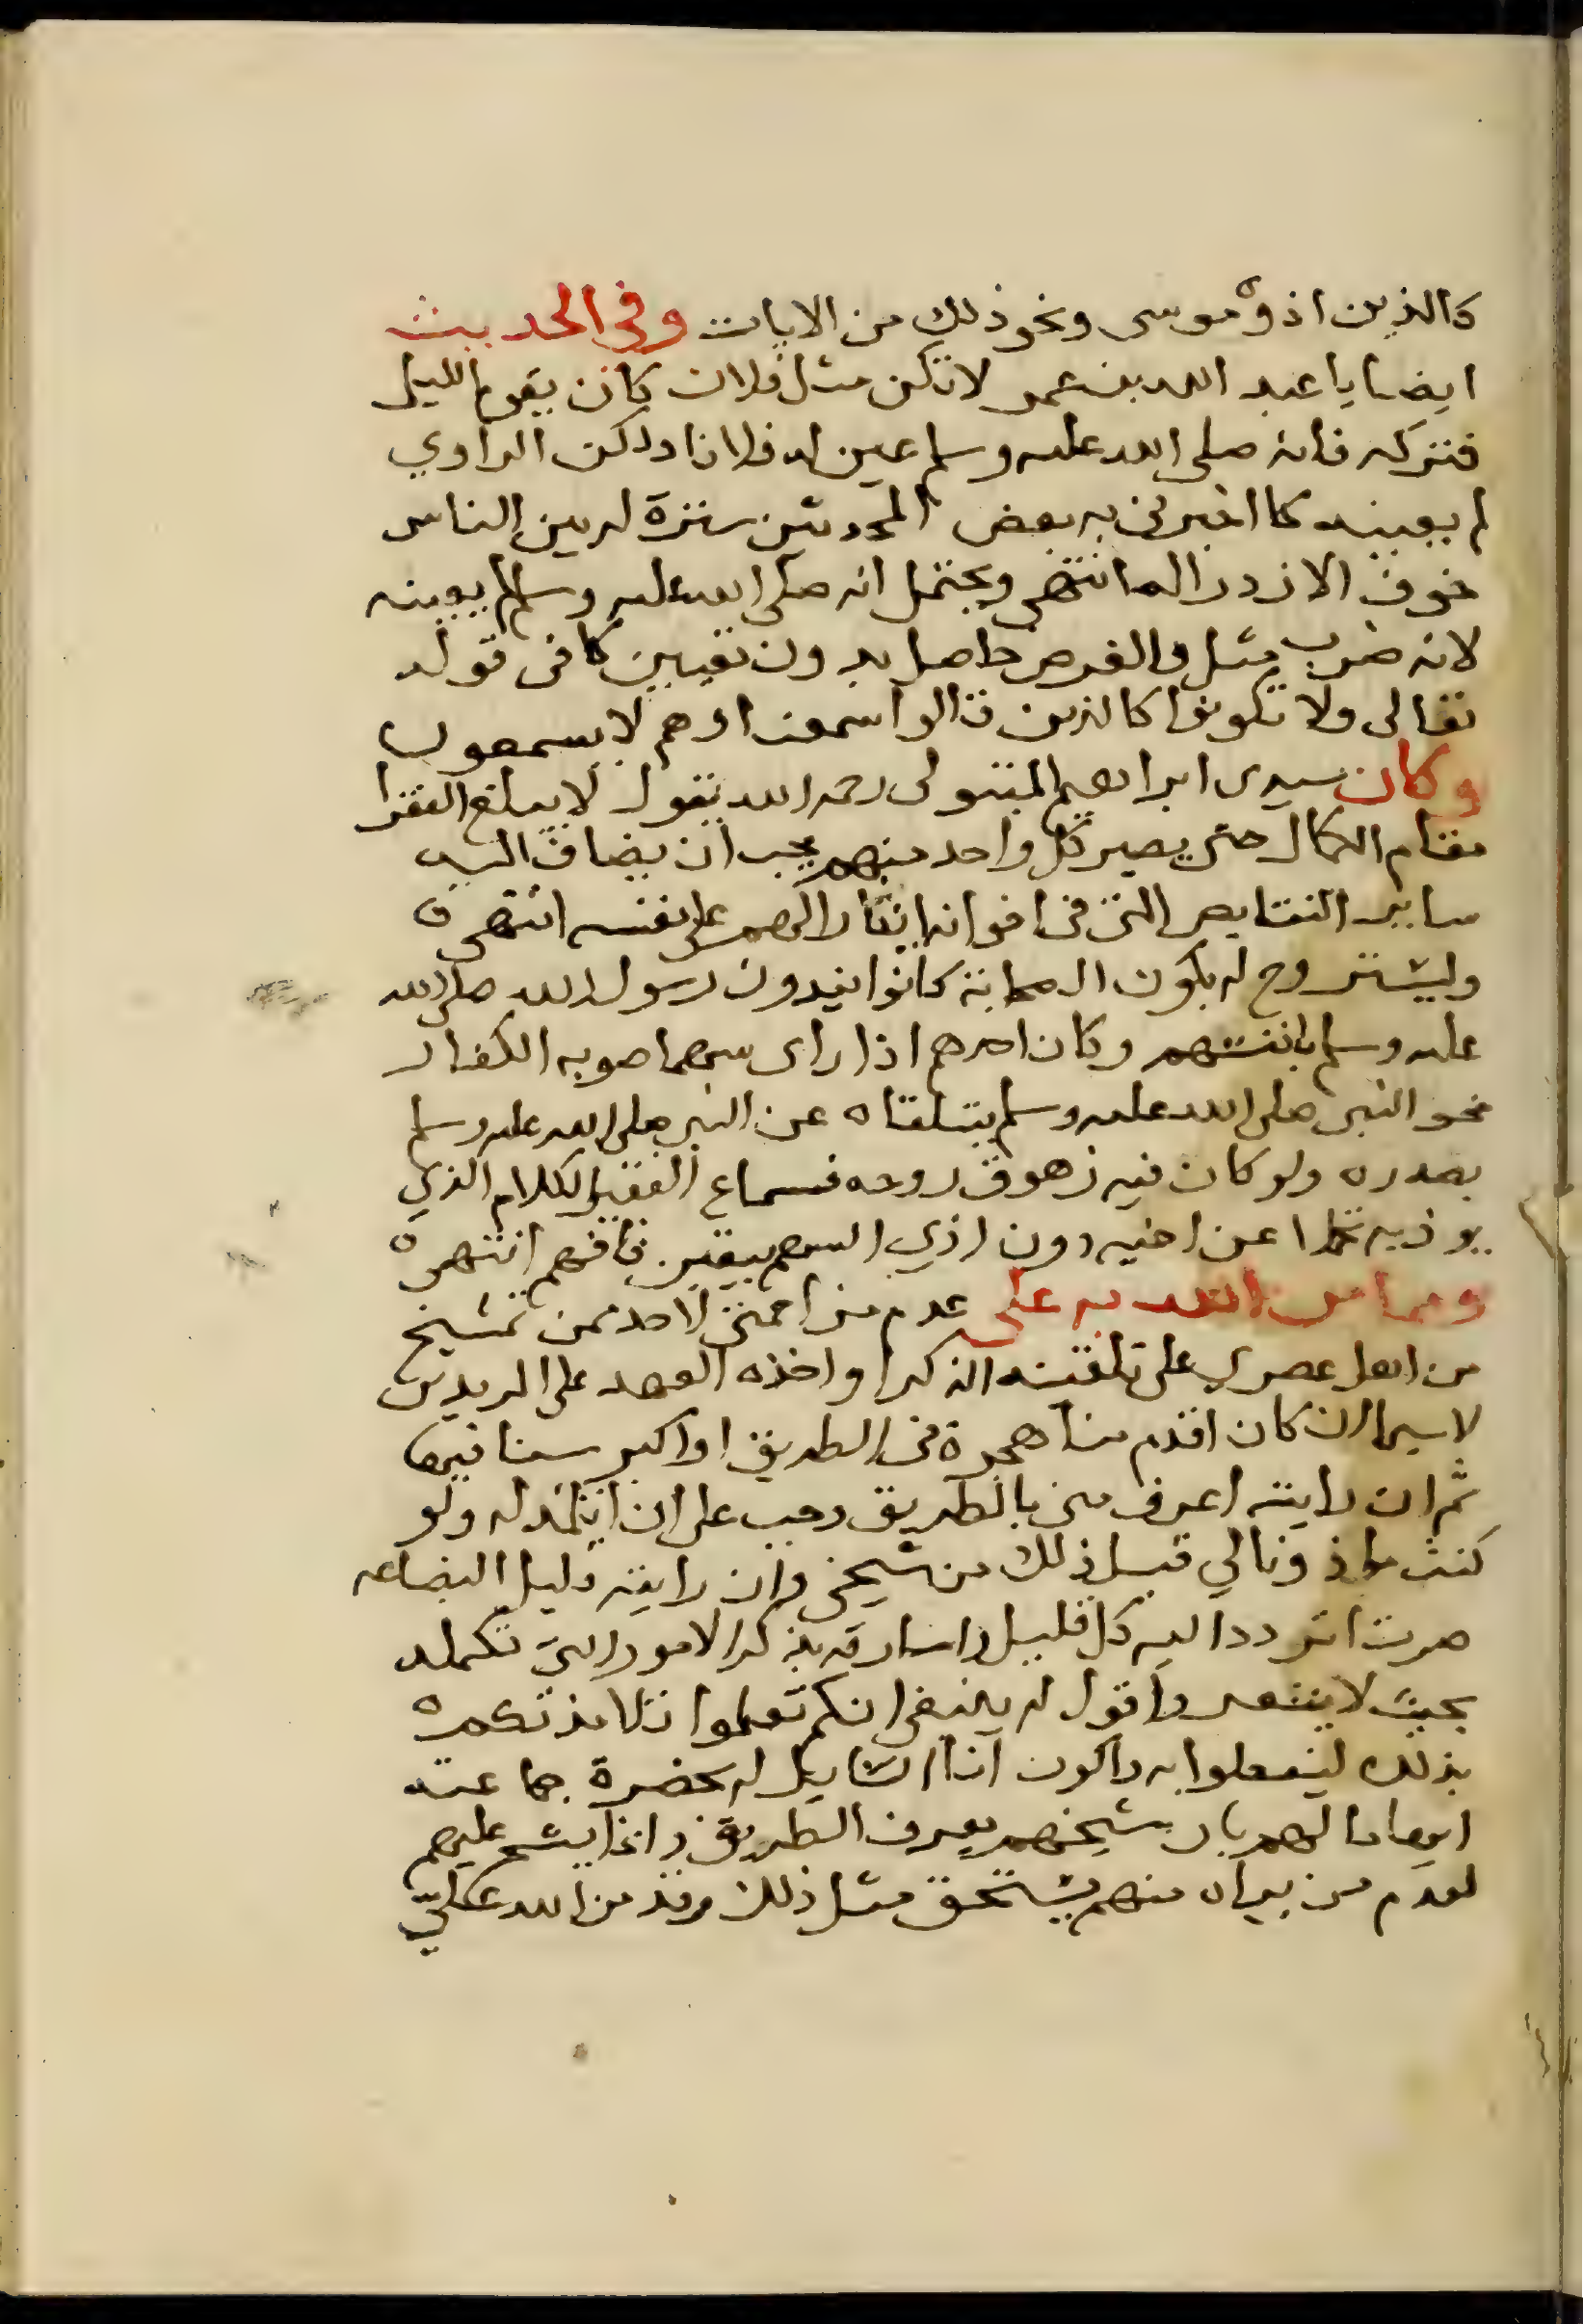 كالذين اذوا موسى ونحو ذلك من الايات وفي الحديث
ايضا يا عبد الله بن عمر لا تكن مثل فلان كان يقوم الليل
فتركه فانه صلى الله عليه وسلم عين له فلانا ولكن الراوي
لم يعينه كما اخبرني به بعض المحدثين سترة له بين الناس
خوف الازدرا له انتهى ويحتمل انه صلى الله عليه وسلم لم يعينه
لانه ضرب مثل والغرض حاصل بدون تعيين كما في قوله
تعالى ولا تكونوا كالذين قالوا سمعنا وهم لا يسمعون
وكان سيدى ابراهيم المتبولى رحمه الله يقول لا يبلغ الفقرا
مقام الكمال حتى يصير كل واحد منهم يحب ان يضاف اليه
ساير النقايص التى في اخوانه ايثارا لهم على نفسه انتهى
وليشتروح له بكون الصحابة كانوا يفدون رسول الله صلى الله
عليه وسلم بانفسهم وكان احدهم اذا راى سهما صوبه الكفار
نحو النبى صلى الله عليه وسلم يتلقاه عن النبى صلى الله عليه وسلم
بصدره ولو كان فيه زهوق روحه فسماع الفقير الكلام الذي
يوذيه تحملا عن اخيه دون اذي السهم بيقين فافهم انتهى
ومما من الله به على عدم مزاحمتى لاحد ممن تمشيخ
من اهل عصرى على تلقينه الذكر او اخذه العهد على المريدين
لا سيما ان كان اقدم منا هجرة فى الطريق او اكبر سنا فيها
ثم ان رايته اعرف منى بالطريق وجب على ان اتلمذ له ولو
كنت ماذونا لي قبل ذلك من شيخى وان رايته قليل البضاعه
صرت اتردد اليه كل قليل واسارقه بذكر الامور التي تكمله
بحيث لا يشعر واقول له ينبغى انكم تعلموا تلامذتكم
بذلك ليعملوا به واكون انا السايل له بحضرة جماعته
ايهاما لهم بان شيخهم يعرف الطريق وانما يشح عليهم
لعدم من يراه منهم يستحق مثل ذلك وقد من الله علىّ